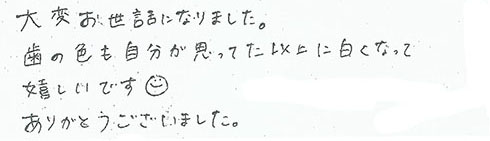 大変お世話になりました。
歯の色も自分が思ってた以上に白くなって
嬉しいです☺
ありがとうございました。